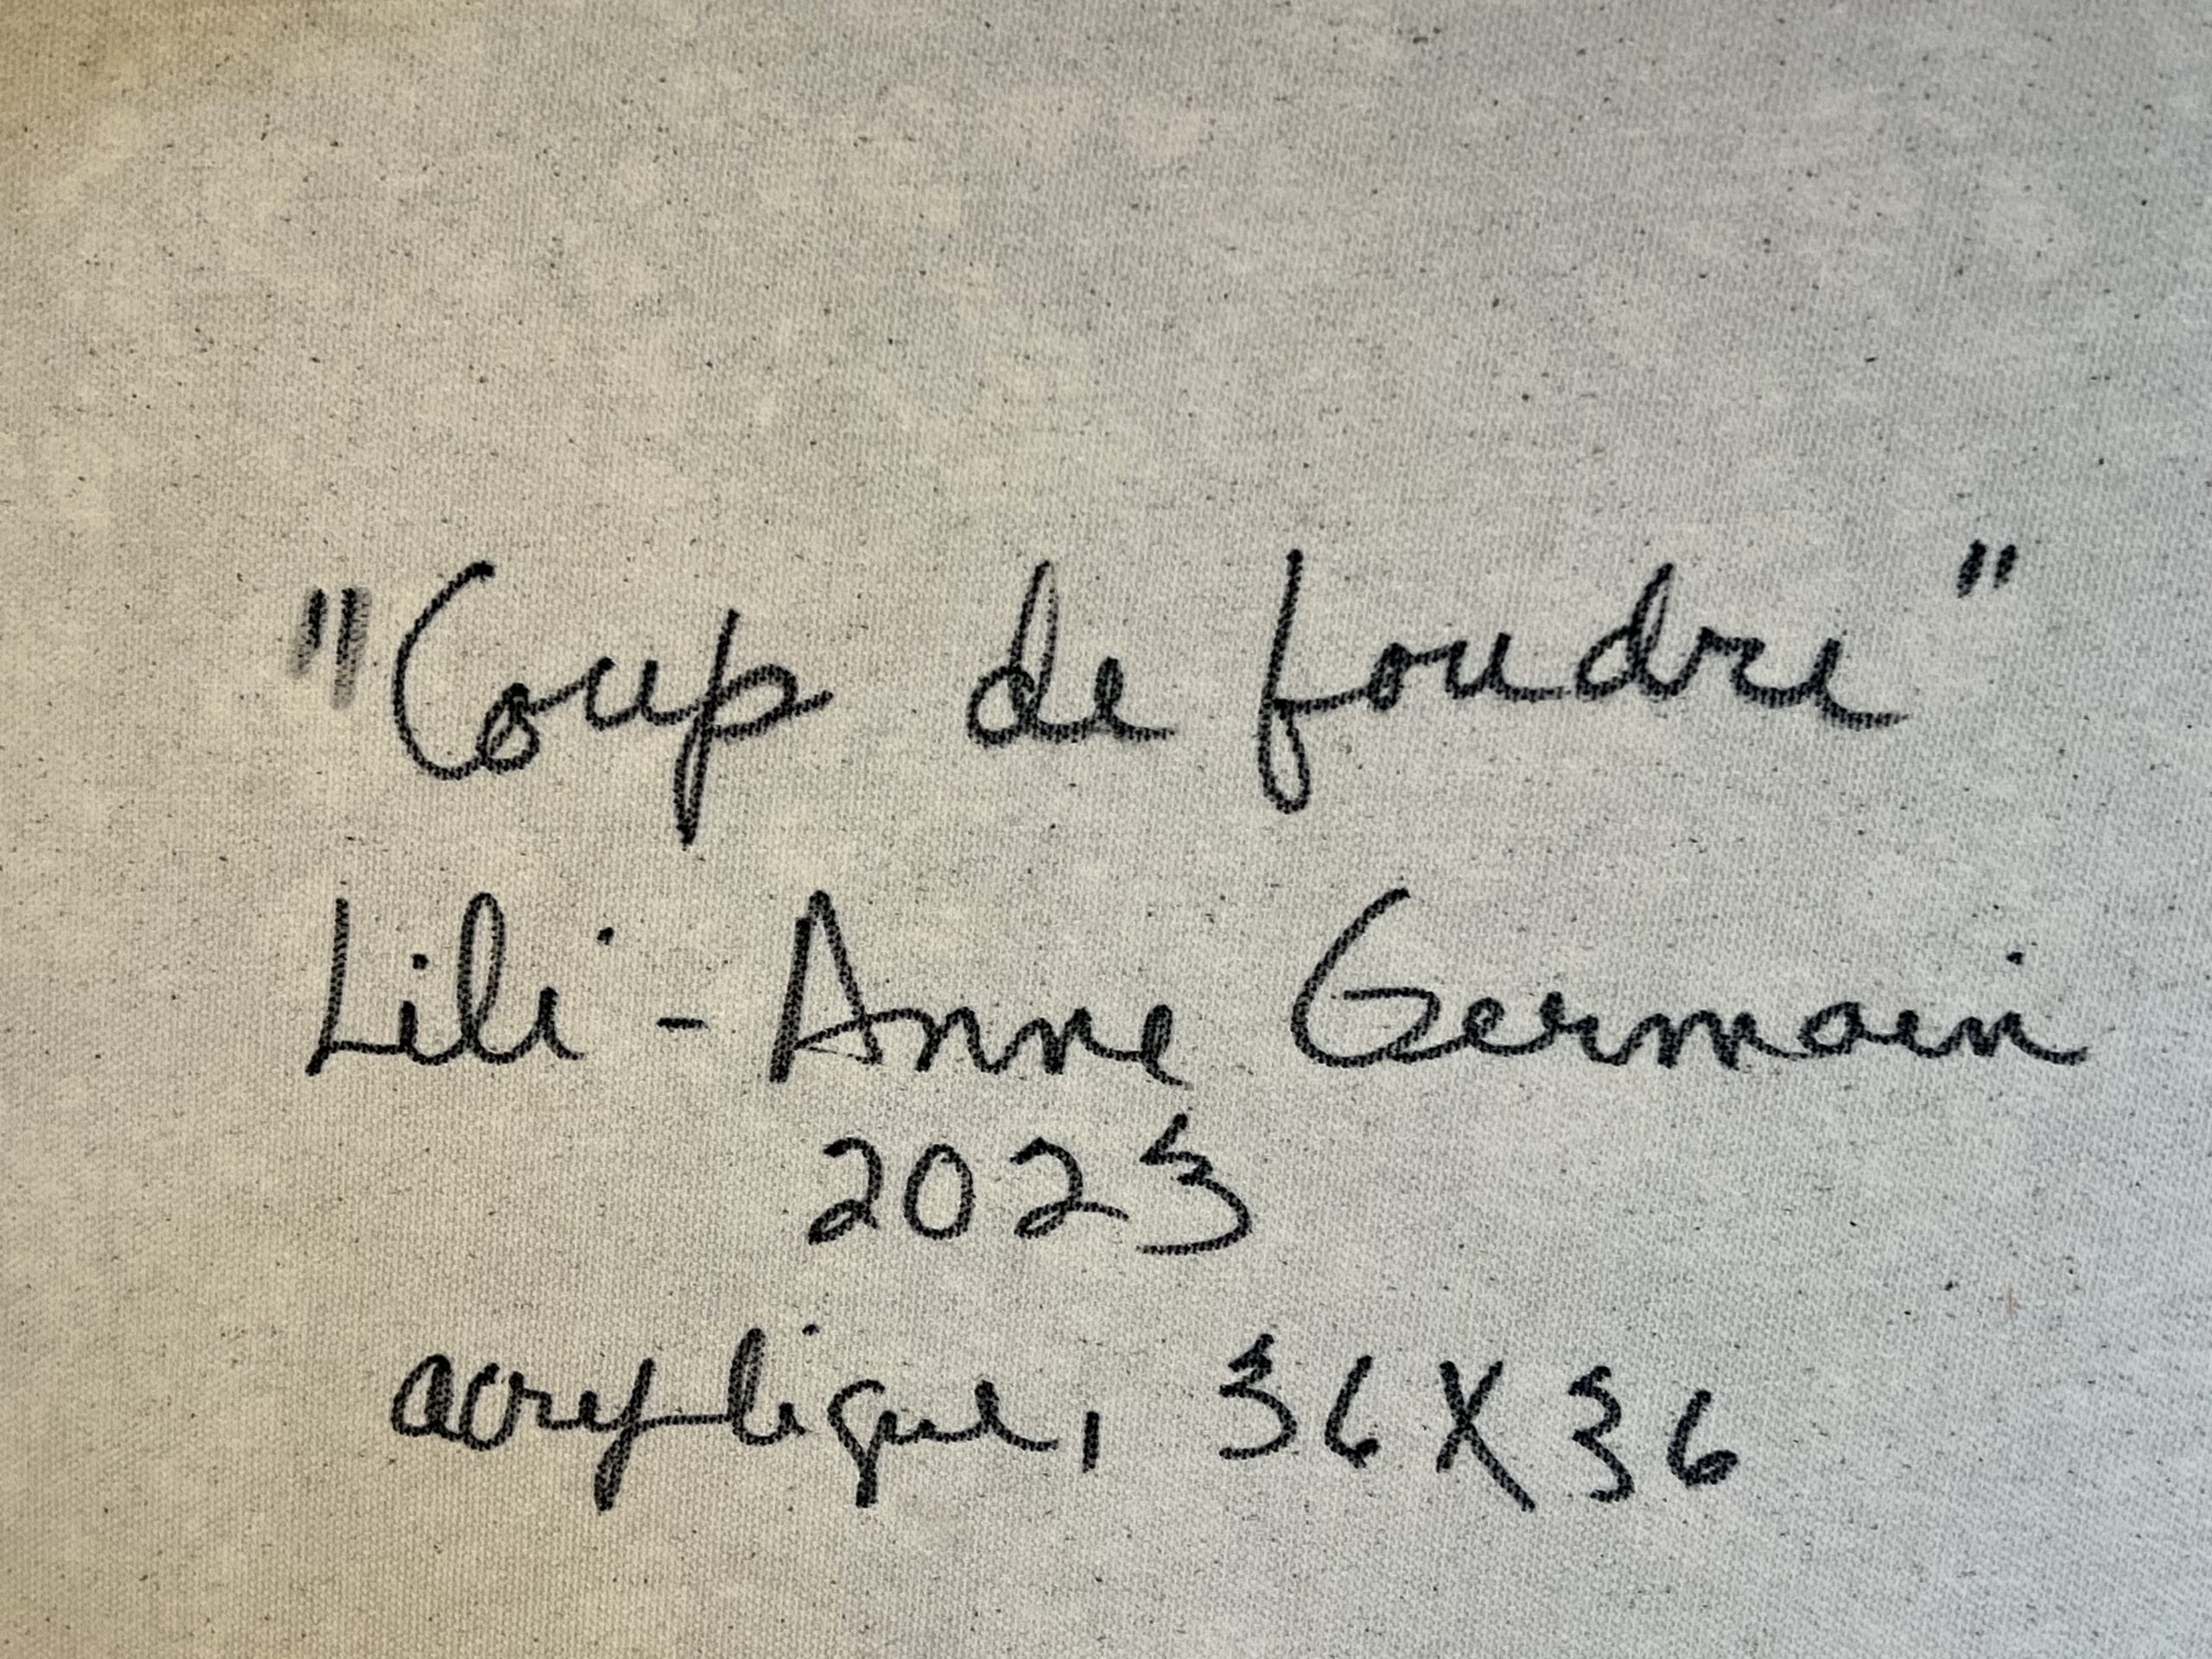 "Coup de foudre"
Lili-Anne Germain
2023
acrylique, 36 X 36